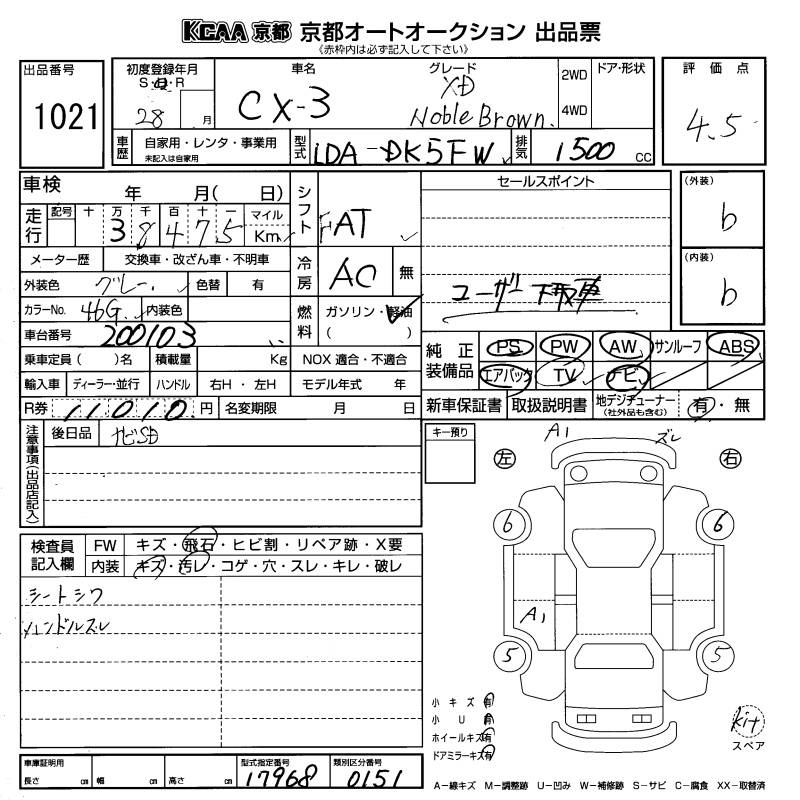 KCAA 京都 京都オートオークション 出品票
《赤枠内は必ず記入して下さい》
出品番号
1021
初度登録年月
S・H・R
28 月
車名
CX-3
グレード
XD
Noble Brown.
2WD
4WD
ドア・形状
評価点
4.5
車歴
自家用・レンタ・事業用
未記入は自家用
型式
LDA-DK5FW
排気
1500 cc
車検 年 月( 日)
走行
記号 十 万 千 百 十 一 マイル
3 8 4 7 5 Km
シフト
FAT
メーター歴 交換車・改ざん車・不明車
外装色 グレー. 色替 有
冷房
AC 無
カラーNo. 46G. 内装色
燃料
ガソリン・軽油
( )
車台番号 200103
乗車定員 ( )名 積載量 Kg NOX 適合・不適合
輸入車 ディーラー・並行 ハンドル 右H・左H モデル年式 年
R券 11010 円 名変期限 月 日
セールスポイント
ユーザー下取車
(外装)
b
(内装)
b
純正装備品
PS PW AW サンルーフ ABS
エアバック TV ナビ
新車保証書 取扱説明書 地デジチューナー
(社外品も含む)
有・無
注意事項(出品店記入)
後日品 ナビSD
キー預り
A1 ズレ
左 右
6 6
A1
5 5
検査員記入欄
FW キズ・飛石・ヒビ割・リペア跡・X要
内装 キズ・汚レ・コゲ・穴・スレ・キレ・破レ
シートシワ
ハンドルズレ
小キズ 有
小U 有
ホイールキズ 有
ドアミラーキズ 有
kit
スペア
車庫証明用
長さ cm 幅 cm 高さ cm
型式指定番号
17968
類別区分番号
0151
A-線キズ M-調整跡 U-凹み W-補修跡 S-サビ C-腐食 XX-取替済